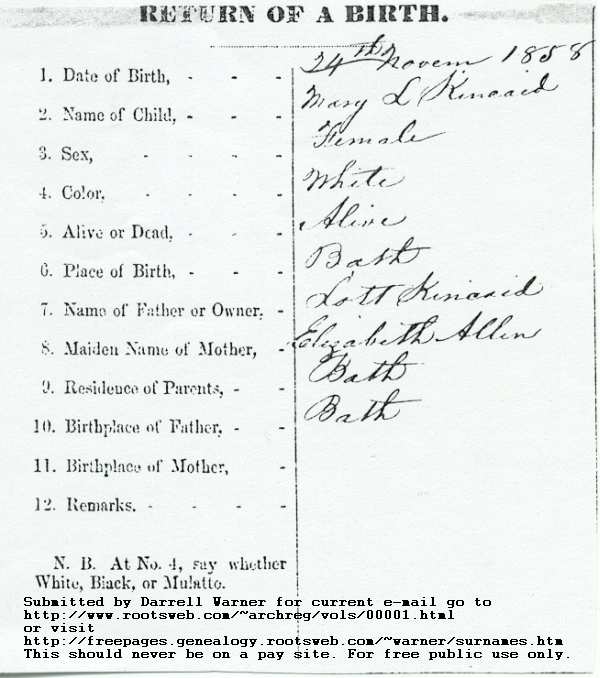 RETURN OF A BIRTH.
1. Date of Birth, - - - 24th Novem 1858
2. Name of Child, - - - Mary L Kincaid
3. Sex, - - - - Female
4. Color, - - - - White
5. Alive or Dead, - - - Alive
6. Place of Birth, - - - Bath
7. Name of Father or Owner, - Lott Kincaid
8. Maiden Name of Mother, - Elizabeth Allen
9. Residence of Parents, - - Bath
10. Birthplace of Father, - - Bath
11. Birthplace of Mother, -
12. Remarks. - - - -
N. B. At No. 4, say whether
White, Black, or Mulatto.
Submitted by Darrell Warner for current e-mail go to
http://www.rootsweb.com/~archreg/vols/00001.html
or visit
http://freepages.genealogy.rootsweb.com/~warner/surnames.htm
This should never be on a pay site. For free public use only.